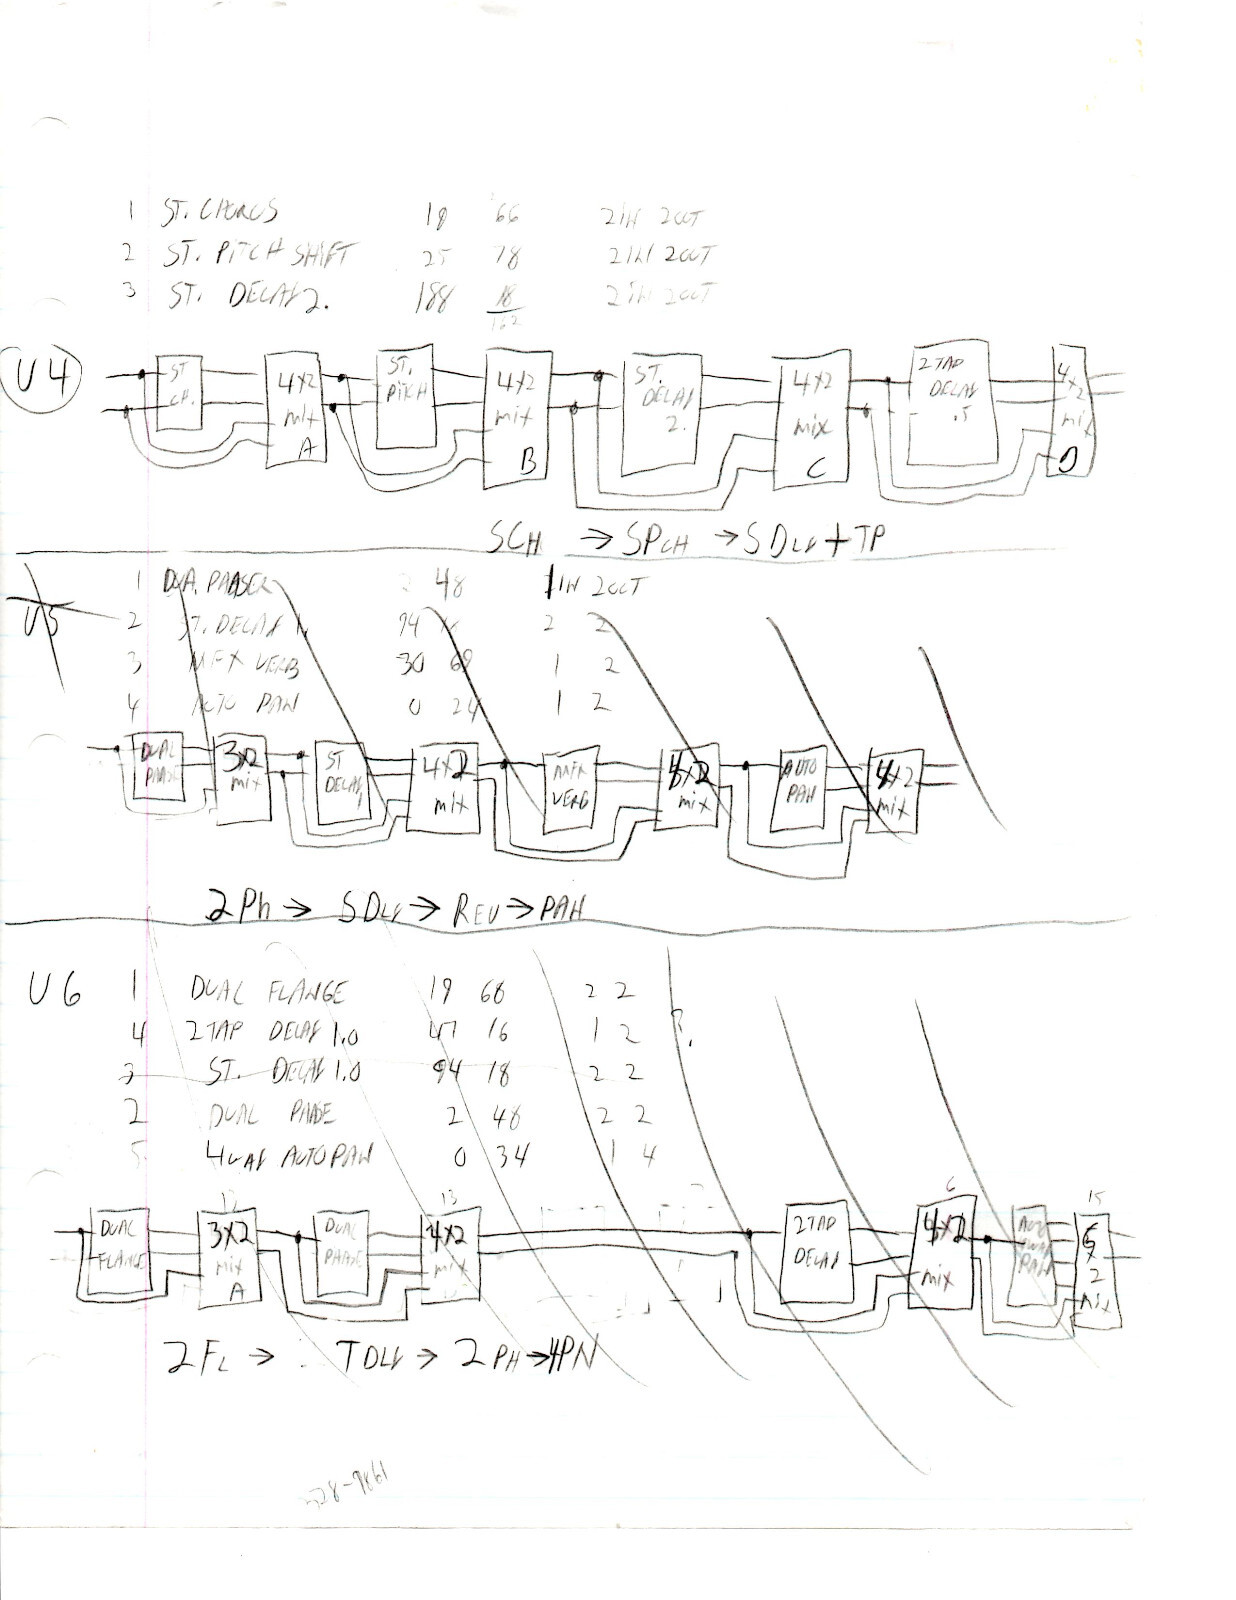 1 ST. CHORUS 19 66 2IN 2OUT
2 ST. PITCH SHIFT 25 78 2IN 2OUT
3 ST. DELAY 2. 188 18 2IN 2OUT
162
U4
ST CH.
4X2 mix A
ST. PITCH
4X2 mit B
ST. DELAY 2.
4X2 mix C
2TAP DELAY .5
4X2 mix D
SCH → SPCH → SDLY + TP
U5
1 DUAL PHASER 2 48 1IN 2OUT
2 ST. DELAY 1. 94 2 2
3 MFX VERB 30 68 1 2
4 AUTO PAN 0 24 1 2
DUAL PHASE
3X2 mix
ST DELAY 1
4X2 mix
MFX VERB
4X2 mix
AUTO PAN
4X2 mix
2Ph → SDLY → REV → PAN
U6
1 DUAL FLANGE 19 68 2 2
4 2TAP DELAY 1.0 47 16 1 2 ?.
3 ST. DELAY 1.0 94 18 2 2
2 DUAL PHASE 2 48 2 2
5 4WAY AUTOPAN 0 34 1 4
12 13 6 15
DUAL FLANGE
3X2 mix A
DUAL PHASE
4X2 mix
2TAP DELAY
4X2 mix
AUTO 4WAY PAN
6X2 mix
2FL → TDLY → 2PH → 4PN
528-9861